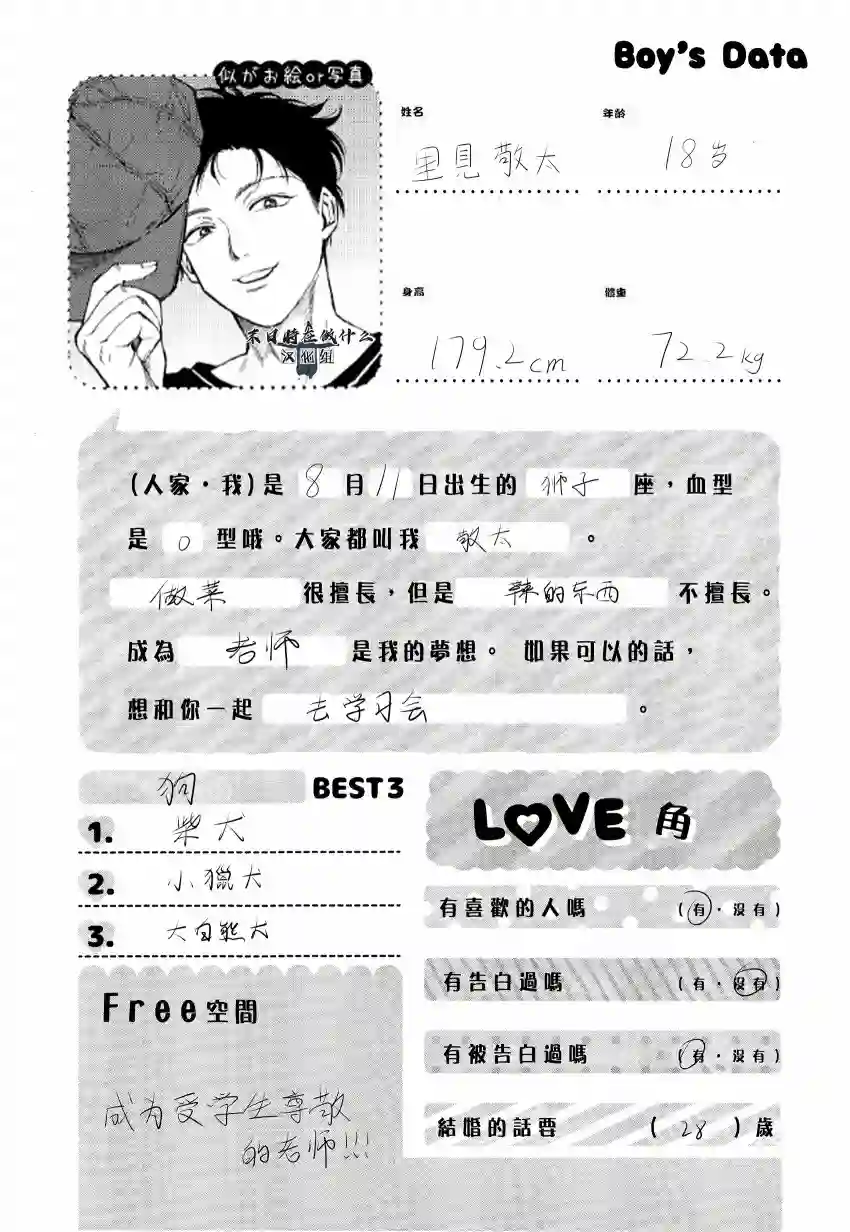 Boy's Data
似がお絵or写真
姓名
里見敬太
年齡
18岁
身高
179.2cm
體重
72.2kg
末日時在做什么
汉化组
(人家・我)是 8 月 11 日出生的 狮子 座，血型
是 O 型哦。大家都叫我 敬太 。
做菜 很擅長，但是 辣的东西 不擅長。
成為 老师 是我的夢想。 如果可以的話，
想和你一起 去学习会 。
狗 BEST3
1. 柴犬
2. 小獵犬
3. 大白熊犬
Free空間
成为受学生尊敬
的老师!!!
LOVE 角
有喜歡的人嗎 (有・沒有)
有告白過嗎 (有・沒有)
有被告白過嗎 (有・沒有)
結婚的話要 ( 28 ) 歲